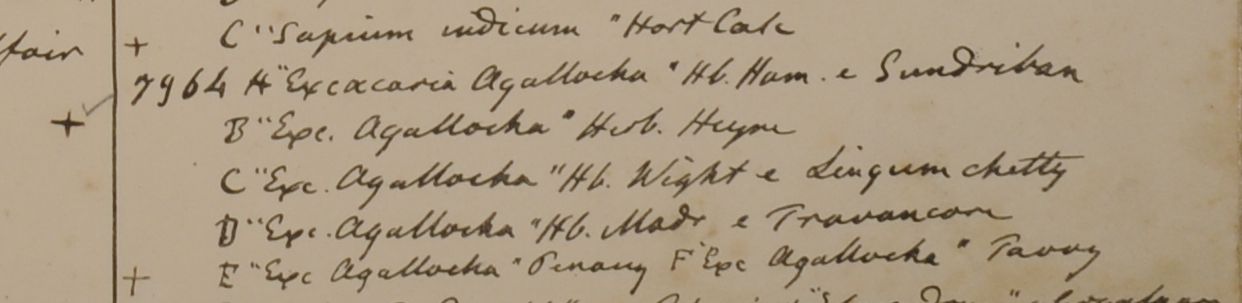 fair + C "Sapium indicum" Hort Calc
7964 A "Excæcaria Agallocha" Hb. Ham. e Sundriban
+ B "Exc. Agallocha" Herb. Heyne
C "Exc. Agallocha" Hb. Wight e Lingum chetty
D "Exc. Agallocha" Hb. Madr e Travancore
+ E "Exc Agallocha" Penang F "Exc Agallocha" Tavoy